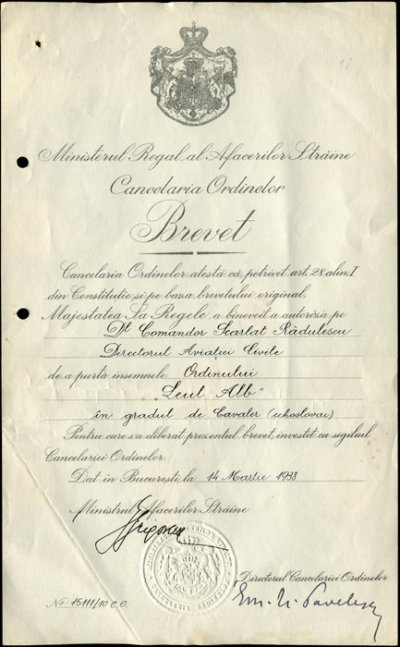 18
Ministerul Regal al Afacerilor Străine
Cancelaria Ordinelor
Brevet
Cancelaria Ordinelor atestă că, potrivit art. 28 alin. I
din Constituție și pe baza brevetului original,
Majestatea Sa Regele a binevoit a autoriza pe
Dl. Comandor Scarlat Rădulescu
Directorul Aviației Civile
de a purtà insemnele Ordinului
"Leul Alb"
în gradul de Cavaler (cehoslovac)
Pentru care s-a eliberat prezentul brevet, investit cu sigiliul
Cancelariei Ordinelor.
Dat în București, la 14 Martie 1938
Ministrul Afacerilor Străine
Directorul Cancelariei Ordinelor
Nr. 15111/10 C.O.